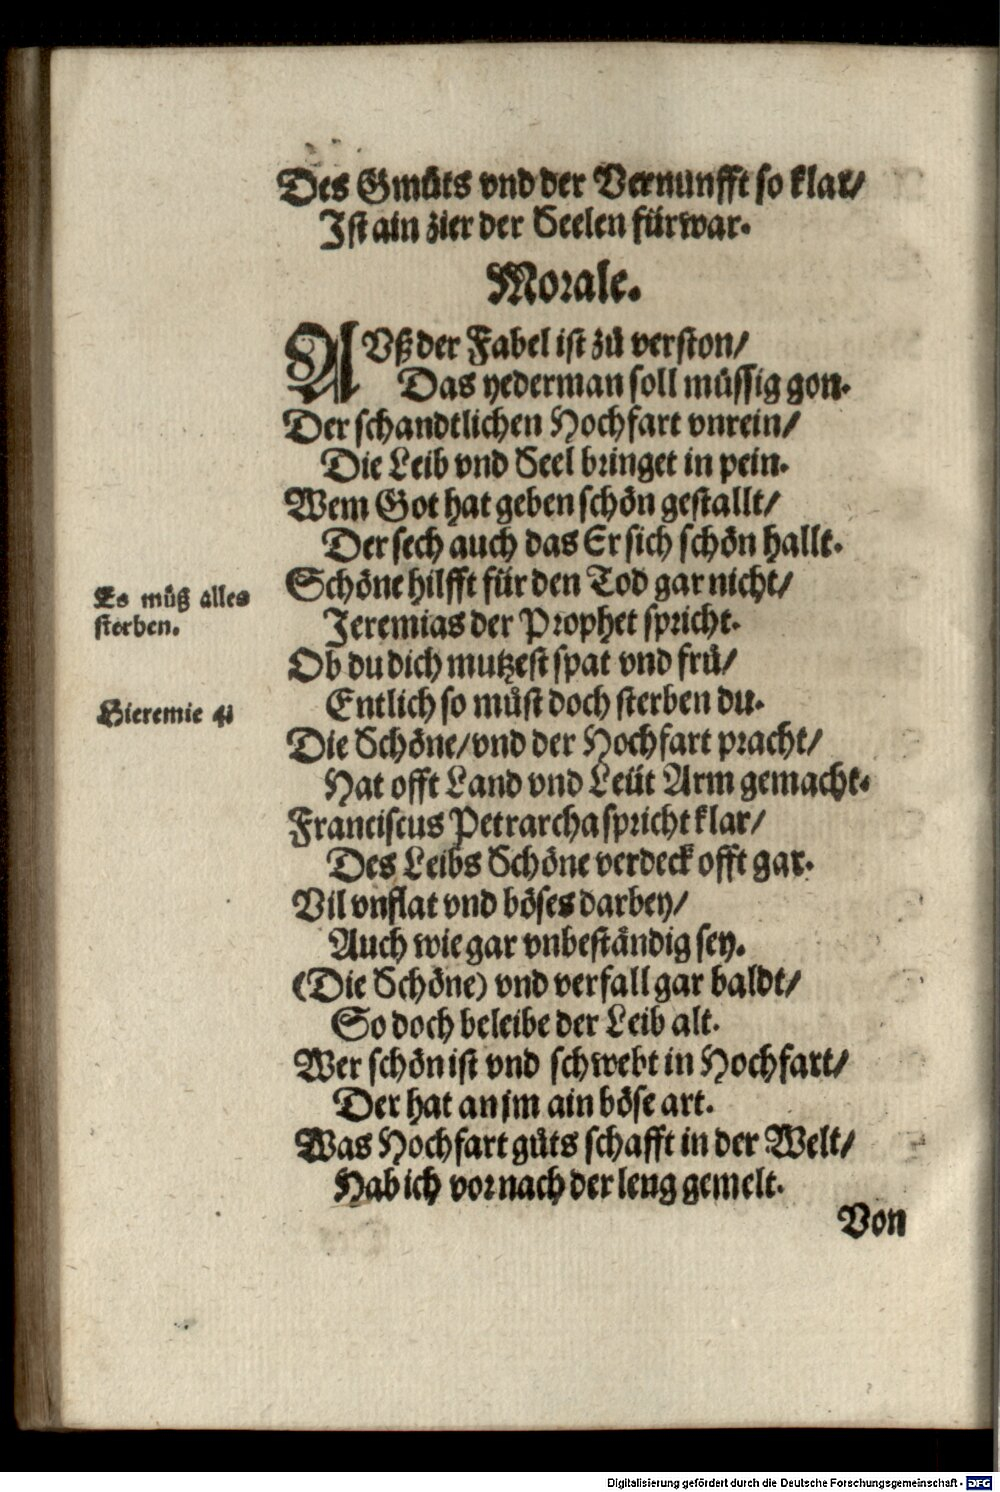 Des Gmuͤts vnd der Vernunfft so klar/
Ist ain zier der Seelen fürwar.
Morale.
AVß der Fabel ist zuͤ verston/
Das yederman soll muͤssig gon.
Der schandtlichen Hochfart vnrein/
Die Leib vnd Seel bringet in pein.
Wem Got hat geben schoͤn gestallt/
Der sech auch das Er sich schoͤn hallt.
Schoͤne hilfft für den Tod gar nicht/
Es muͤß alles
sterben.
Jeremias der Prophet spricht.
Ob du dich mutzest spat vnd fruͤ/
Entlich so muͤst doch sterben du.
Hieremie 4j
Die Schoͤne/vnd der Hochfart pracht/
Hat offt Land vnd Leüt Arm gemacht.
Franciscus Petrarcha spricht klar/
Des Leibs Schoͤne verdeck offt gar.
Vil vnflat vnd boͤses darbey/
Auch wie gar vnbestaͤndig sey.
(Die Schoͤne) vnd verfall gar baldt/
So doch beleibe der Leib alt.
Wer schoͤn ist vnd schwebt in Hochfart/
Der hat an jm ain boͤse art.
Was Hochfart guͤts schafft in der Welt/
Hab ich vor nach der leng gemelt.
Von
Digitalisierung gefördert durch die Deutsche Forschungsgemeinschaft - DFG